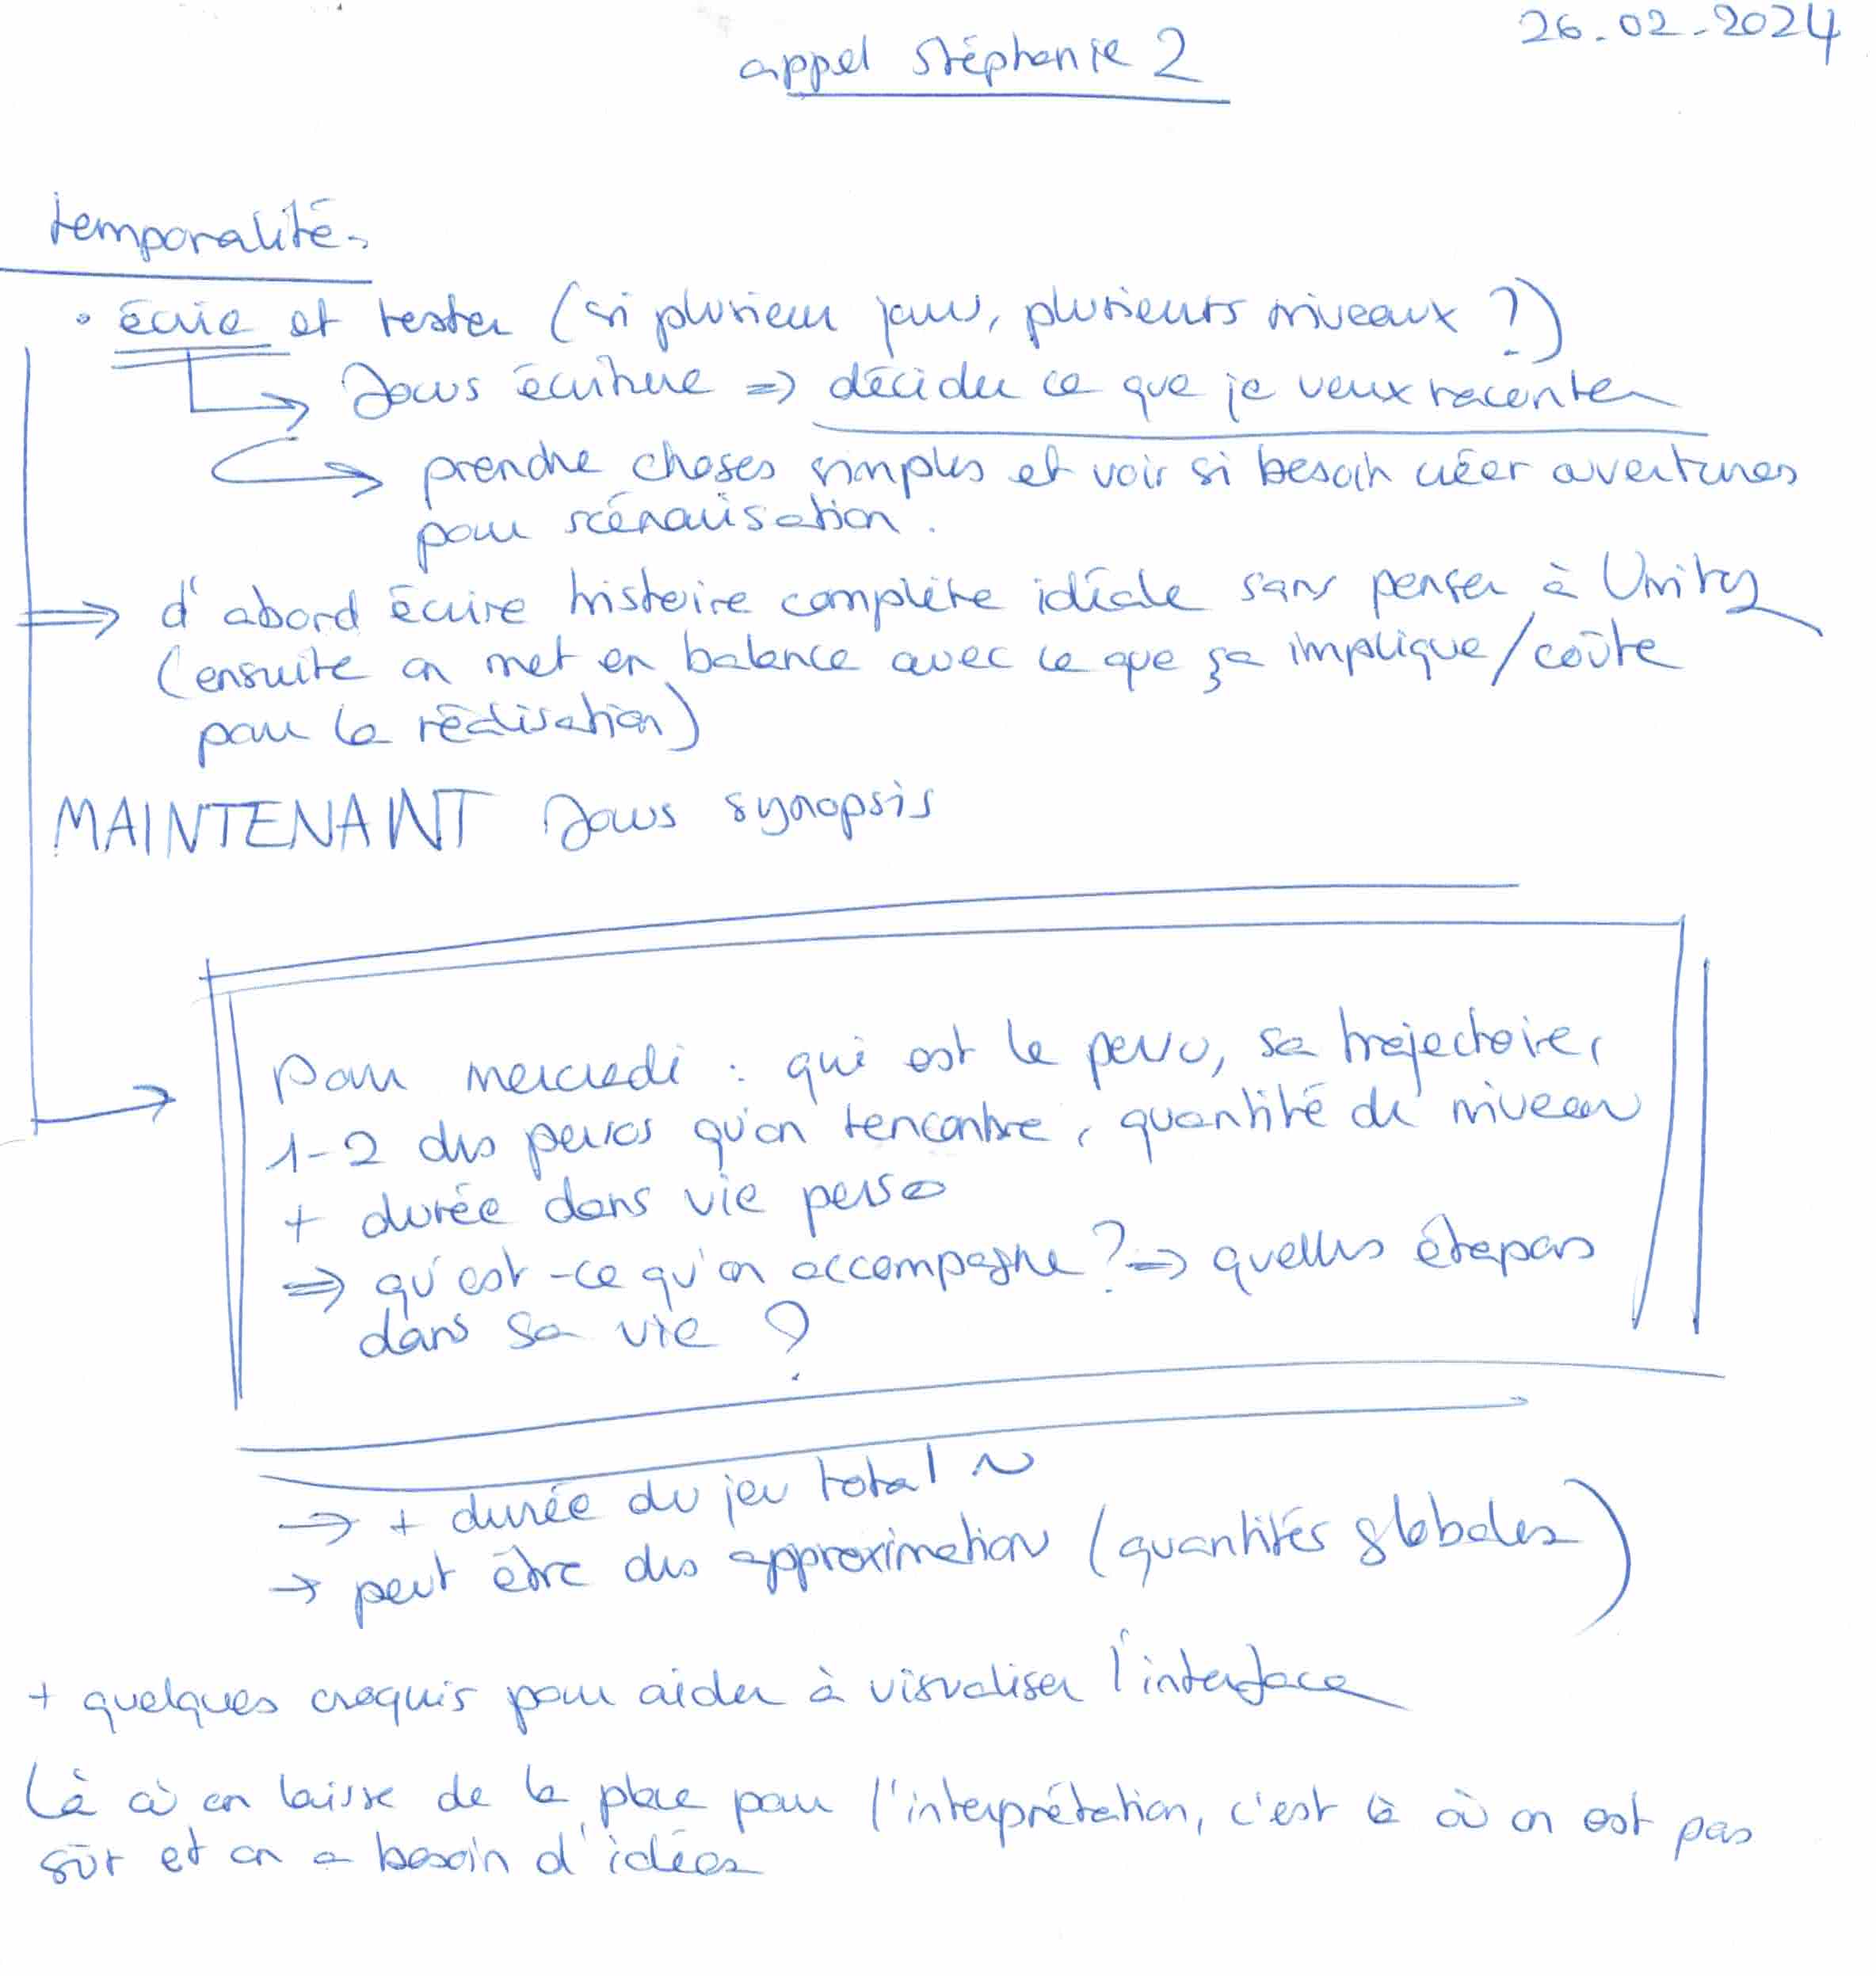 26-02-2024
appel Stéphanie 2
temporalité.
• écrire et tester (si plusieurs jours, plusieurs niveaux ?)
↳ focus écriture => décider ce que je veux raconter
→ prendre choses simples et voir si besoin créer ouvertures
pour scénarisation.
=> d'abord écrire histoire complète idéale sans penser à Unity
(ensuite on met en balance avec ce que ça implique/coûte
pour la réalisation)
MAINTENANT focus synopsis
→ Pour mercredi : qui est le perso, sa trajectoire,
1-2 des persos qu'on rencontre, quantité de niveau
+ durée dans vie perso
=> qu'est-ce qu'on accompagne ? => quelles étapes
dans sa vie ?
→ + durée du jeu total ~
→ peut être des approximation (quantités globales)
+ quelques croquis pour aider à visualiser l'interface
Là où on laisse de la place pour l'interprétation, c'est là où on est pas
sûr et on a besoin d'idées